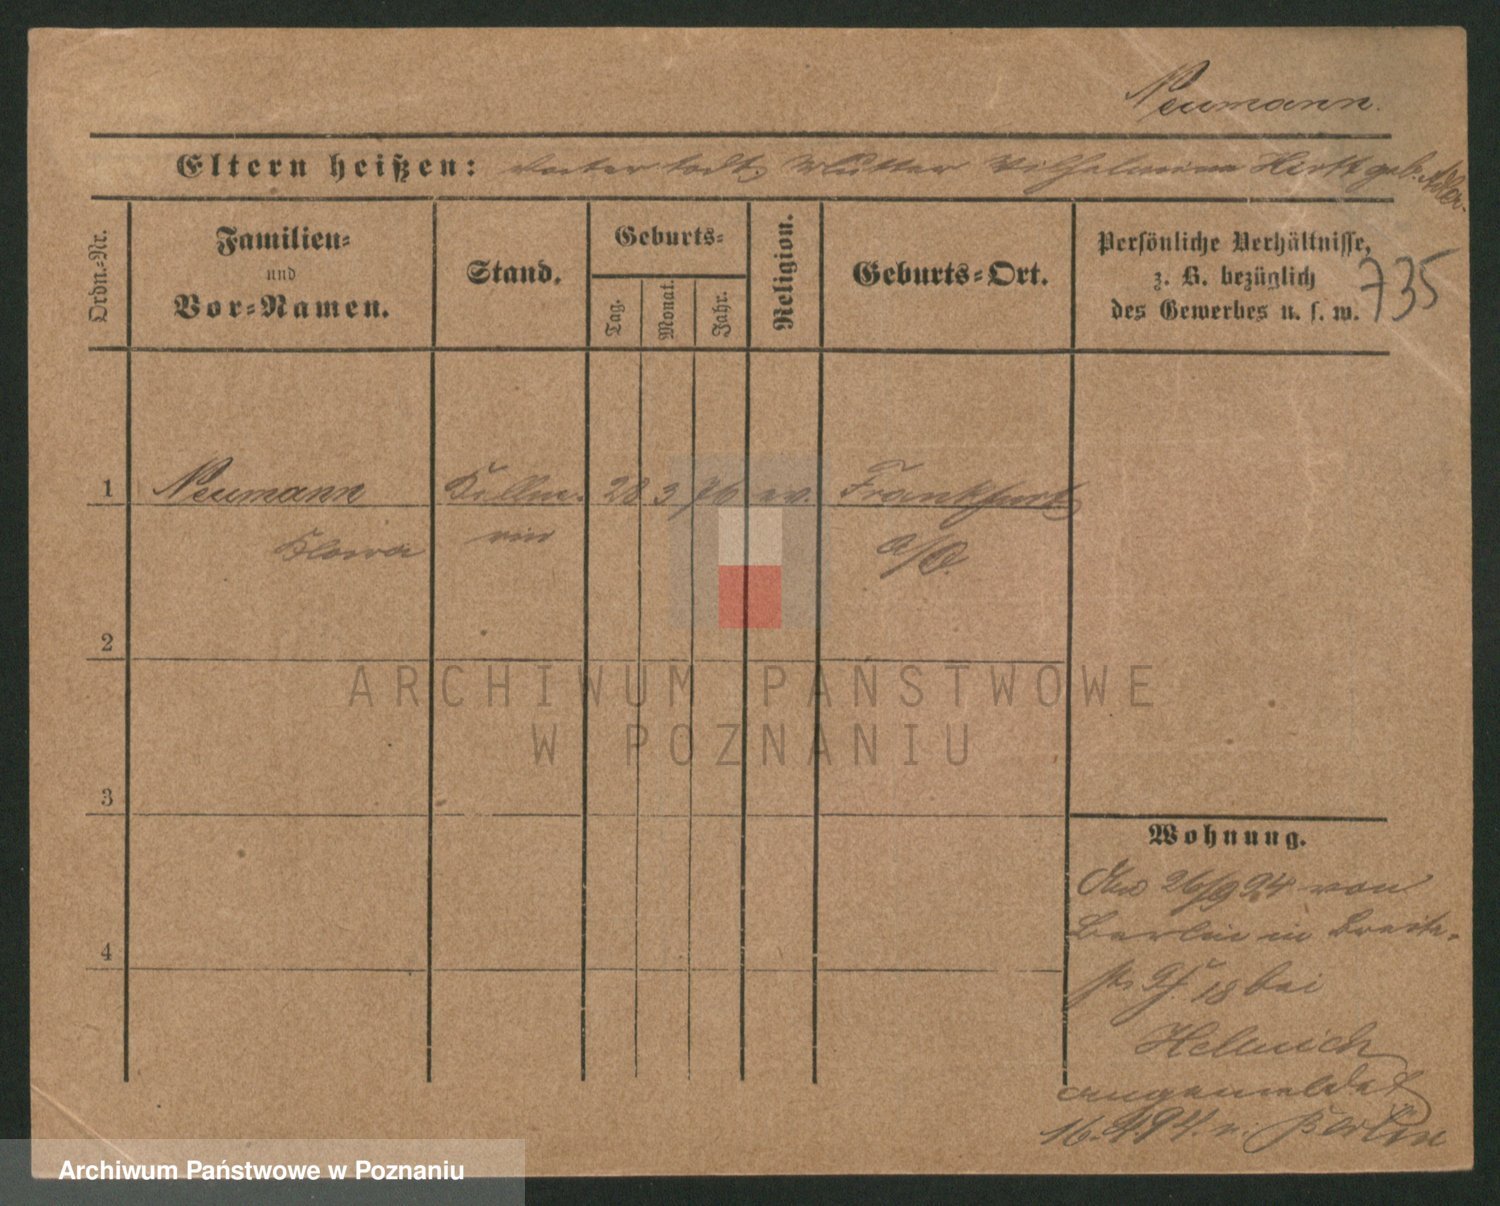 Neumann.
Eltern heißen: Vater todt, Mutter Wilhelmine Hirt geb.
Ordn.-Nr.
Familien-
und
Vor-Namen.
Stand.
Geburts-
Tag.
Monat.
Jahr.
Religion.
Geburts-Ort.
Persönliche Verhältnisse,
z. B. bezüglich
des Gewerbes u. s. w.
735
1 Neumann Kellne- 28 3 76 ev. Frankfurt
Klara rin a/O.
2
3
4
Wohnung.
26/9 94 von
Berlin in Breite-
str. 18 bei
Hellmich
angemeldet
16. 94. n. Berlin
ARCHIWUM PAŃSTWOWE
W POZNANIU
Archiwum Państwowe w Poznaniu